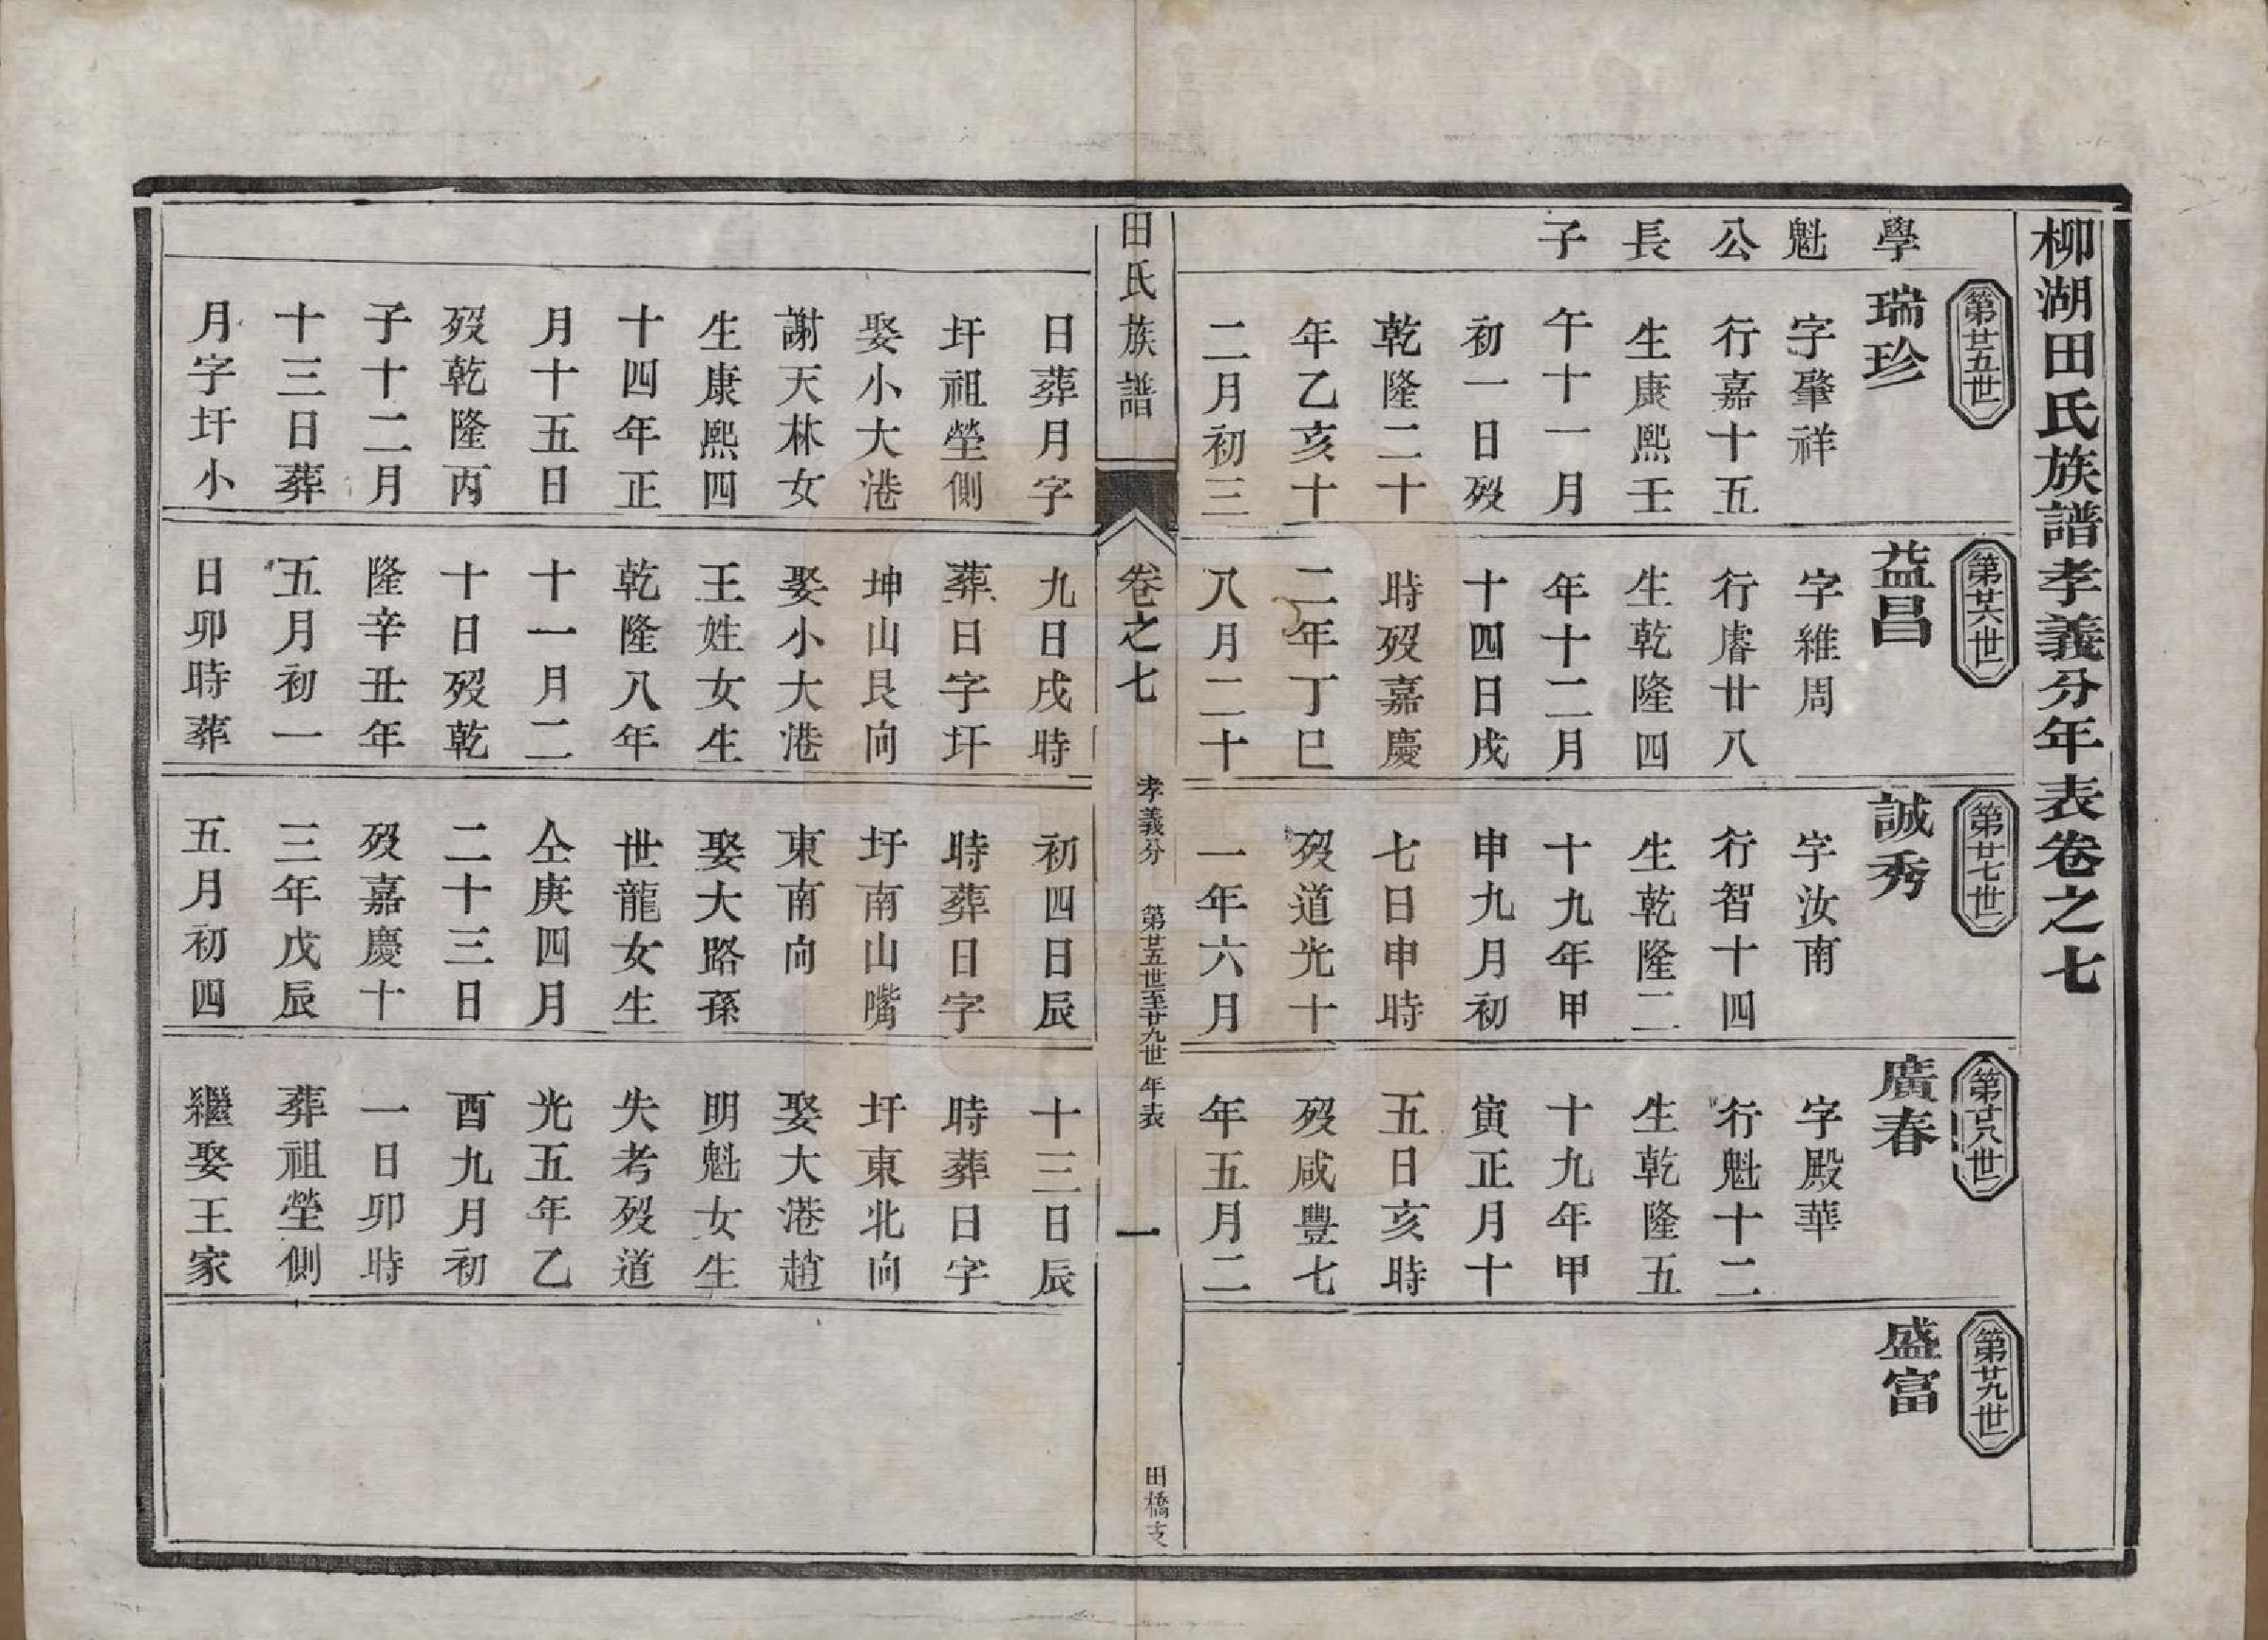 柳湖田氏族譜孝義分年表卷之七
學魁公長子
第廿五世
瑞珍
字肇祥
行嘉十五
生康熙壬
午十一月
初一日歿
乾隆二十
年乙亥十
二月初三
第廿六世
益昌
字維周
行睿廿八
生乾隆四
年十二月
十四日戌
時歿嘉慶
二年丁巳
八月二十
第廿七世
誠秀
字汝南
行智十四
生乾隆二
十九年甲
申九月初
七日申時
歿道光十
一年六月
第廿八世
廣春
字殿華
行魁十二
生乾隆五
十九年甲
寅正月十
五日亥時
歿咸豐七
年五月二
第廿九世
盛富
田氏族譜
卷之七
孝義分
第廿五世至廿九世年表
一
田橋支
日葬月字
圩祖塋側
娶小大港
謝天林女
生康熙四
十四年正
月十五日
歿乾隆丙
子十二月
十三日葬
月字圩小
九日戌時
葬日字圩
坤山艮向
娶小大港
王姓女生
乾隆八年
十一月二
十日歿乾
隆辛丑年
五月初一
日卯時葬
初四日辰
時葬日字
圩南山嘴
東南向
娶大路孫
世龍女生
仝庚四月
二十三日
歿嘉慶十
三年戊辰
五月初四
十三日辰
時葬日字
圩東北向
娶大港趙
明魁女生
失考歿道
光五年乙
酉九月初
一日卯時
葬祖塋側
繼娶王家